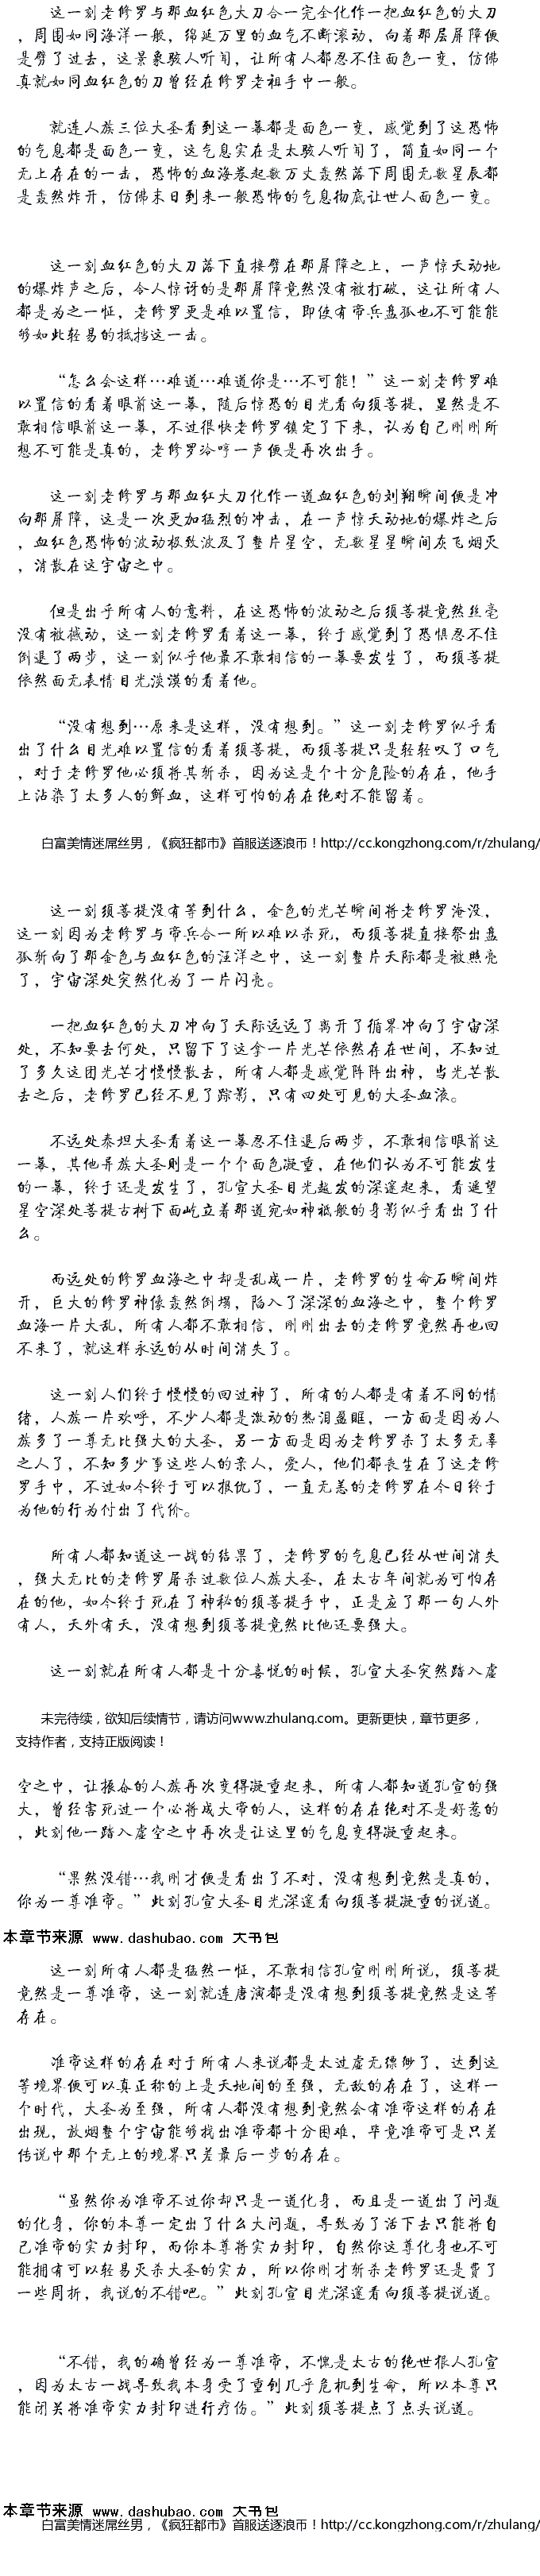 这一刻老修罗与那血红色大刀合一完全化作一把血红色的大刀
，周围如同海洋一般，绵延万里的血气不断滚动，向着那层屏障便
是劈了过去，这景象骇人听闻，让所有人都忍不住面色一变，仿佛
真就如同血红色的刀曾经在修罗老祖手中一般。
就连人族三位大圣看到这一幕都是面色一变，感觉到了这恐怖
的气息都是面色一变，这气息实在是太骇人听闻了，简直如同一个
无上存在的一击，恐怖的血海卷起数万丈轰然落下周围无数星辰都
是轰然炸开，仿佛末日到来一般恐怖的气息彻底让世人面色一变。
这一刻血红色的大刀落下直接劈在那屏障之上，一声惊天动地
的爆炸声之后，令人惊讶的是那屏障竟然没有被打破，这让所有人
都是为之一怔，老修罗更是难以置信，即使有帝兵蓝狐也不可能能
够如此轻易的抵挡这一击。
“怎么会这样…难道…难道你是…不可能！”这一刻老修罗难
以置信的看着眼前这一幕，随后惊恐的目光看向须菩提，显然是不
敢相信眼前这一幕，不过很快老修罗镇定了下来，认为自己刚刚所
想不可能是真的，老修罗冷哼一声便是再次出手。
这一刻老修罗与那血红大刀化作一道血红色的刘翔瞬间便是冲
向那屏障，这是一次更加猛烈的冲击，在一声惊天动地的爆炸之后
，血红色恐怖的波动极致波及了整片星空，无数星星瞬间灰飞烟灭
，消散在这宇宙之中。
但是出乎所有人的意料，在这恐怖的波动之后须菩提竟然丝毫
没有被撼动，这一刻老修罗看着这一幕，终于感觉到了恐惧忍不住
倒退了两步，这一刻似乎他最不敢相信的一幕要发生了，而须菩提
依然面无表情目光淡漠的看着他。
“没有想到…原来是这样，没有想到。”这一刻老修罗似乎看
出了什么目光难以置信的看着须菩提，而须菩提只是轻轻叹了口气
，对于老修罗他必须将其斩杀，因为这是个十分危险的存在，他手
上沾染了太多人的鲜血，这样可怕的存在绝对不能留着。
白富美情迷屌丝男，《疯狂都市》首服送逐浪币！http://cc.kongzhong.com/r/zhulang/
这一刻须菩提没有等到什么，金色的光芒瞬间将老修罗淹没，
这一刻因为老修罗与帝兵合一所以难以杀死，而须菩提直接祭出蓝
狐斩向了那金色与血红色的汪洋之中，这一刻整片天际都是被照亮
了，宇宙深处突然化为了一片闪亮。
一把血红色的大刀冲向了天际远远了离开了循界冲向了宇宙深
处，不知要去何处，只留下了这拿一片光芒依然存在世间，不知过
了多久这团光芒才慢慢散去，所有人都是感觉阵阵出神，当光芒散
去之后，老修罗已经不见了踪影，只有四处可见的大圣血液。
不远处泰坦大圣看着这一幕忍不住退后两步，不敢相信眼前这
一幕，其他异族大圣则是一个个面色凝重，在他们认为不可能发生
的一幕，终于还是发生了，孔宣大圣目光越发的深邃起来，看遥望
星空深处菩提古树下面屹立着那道宛如神祗般的身影似乎看出了什
么。
而远处的修罗血海之中却是乱成一片，老修罗的生命石瞬间炸
开，巨大的修罗神像轰然倒塌，陷入了深深的血海之中，整个修罗
血海一片大乱，所有人都不敢相信，刚刚出去的老修罗竟然再也回
不来了，就这样永远的从时间消失了。
这一刻人们终于慢慢的回过神了，所有的人都是有着不同的情
绪，人族一片欢呼，不少人都是激动的热泪盈眶，一方面是因为人
族多了一尊无比强大的大圣，另一方面是因为老修罗杀了太多无辜
之人了，不知多少事这些人的亲人，爱人，他们都丧生在了这老修
罗手中，不过如今终于可以报仇了，一直无恙的老修罗在今日终于
为他的行为付出了代价。
所有人都知道这一战的结果了，老修罗的气息已经从世间消失
，强大无比的老修罗屠杀过数位人族大圣，在太古年间就为可怕存
在的他，如今终于死在了神秘的须菩提手中，正是应了那一句人外
有人，天外有天，没有想到须菩提竟然比他还要强大。
这一刻就在所有人都是十分喜悦的时候，孔宣大圣突然踏入虚
未完待续，欲知后续情节，请访问www.zhulang.com。更新更快，章节更多，
支持作者，支持正版阅读！
空之中，让振奋的人族再次变得凝重起来，所有人都知道孔宣的强
大，曾经害死过一个必将成大帝的人，这样的存在绝对不是好惹的
，此刻他一踏入虚空之中再次是让这里的气息变得凝重起来。
“果然没错…我刚才便是看出了不对，没有想到竟然是真的，
你为一尊准帝。”此刻孔宣大圣目光深邃看向须菩提凝重的说道。
本章节来源 www.dashubao.com 大书包
这一刻所有人都是猛然一怔，不敢相信孔宣刚刚所说，须菩提
竟然是一尊准帝，这一刻就连唐演都是没有想到须菩提竟然是这等
存在。
准帝这样的存在对于所有人来说都是太过虚无缥缈了，达到这
等境界便可以真正称的上是天地间的至强，无敌的存在了，这样一
个时代，大圣为至强，所有人都没有想到竟然会有准帝这样的存在
出现，放烟整个宇宙能够找出准帝都十分困难，毕竟准帝可是只差
传说中那个无上的境界只差最后一步的存在。
“虽然你为准帝不过你却只是一道化身，而且是一道出了问题
的化身，你的本尊一定出了什么大问题，导致为了活下去只能将自
己准帝的实力封印，而你本尊将实力封印，自然你这尊化身也不可
能拥有可以轻易灭杀大圣的实力，所以你刚才斩杀老修罗还是费了
一些周折，我说的不错吧。”此刻孔宣目光深邃看向须菩提说道。
“不错，我的确曾经为一尊准帝，不愧是太古的绝世狠人孔宣
，因为太古一战导致我本身受了重创几乎危机到生命，所以本尊只
能闭关将准帝实力封印进行疗伤。”此刻须菩提点了点头说道。
本章节来源 www.dashubao.com 大书包
白富美情迷屌丝男，《疯狂都市》首服送逐浪币！http://cc.kongzhong.com/r/zhulang/